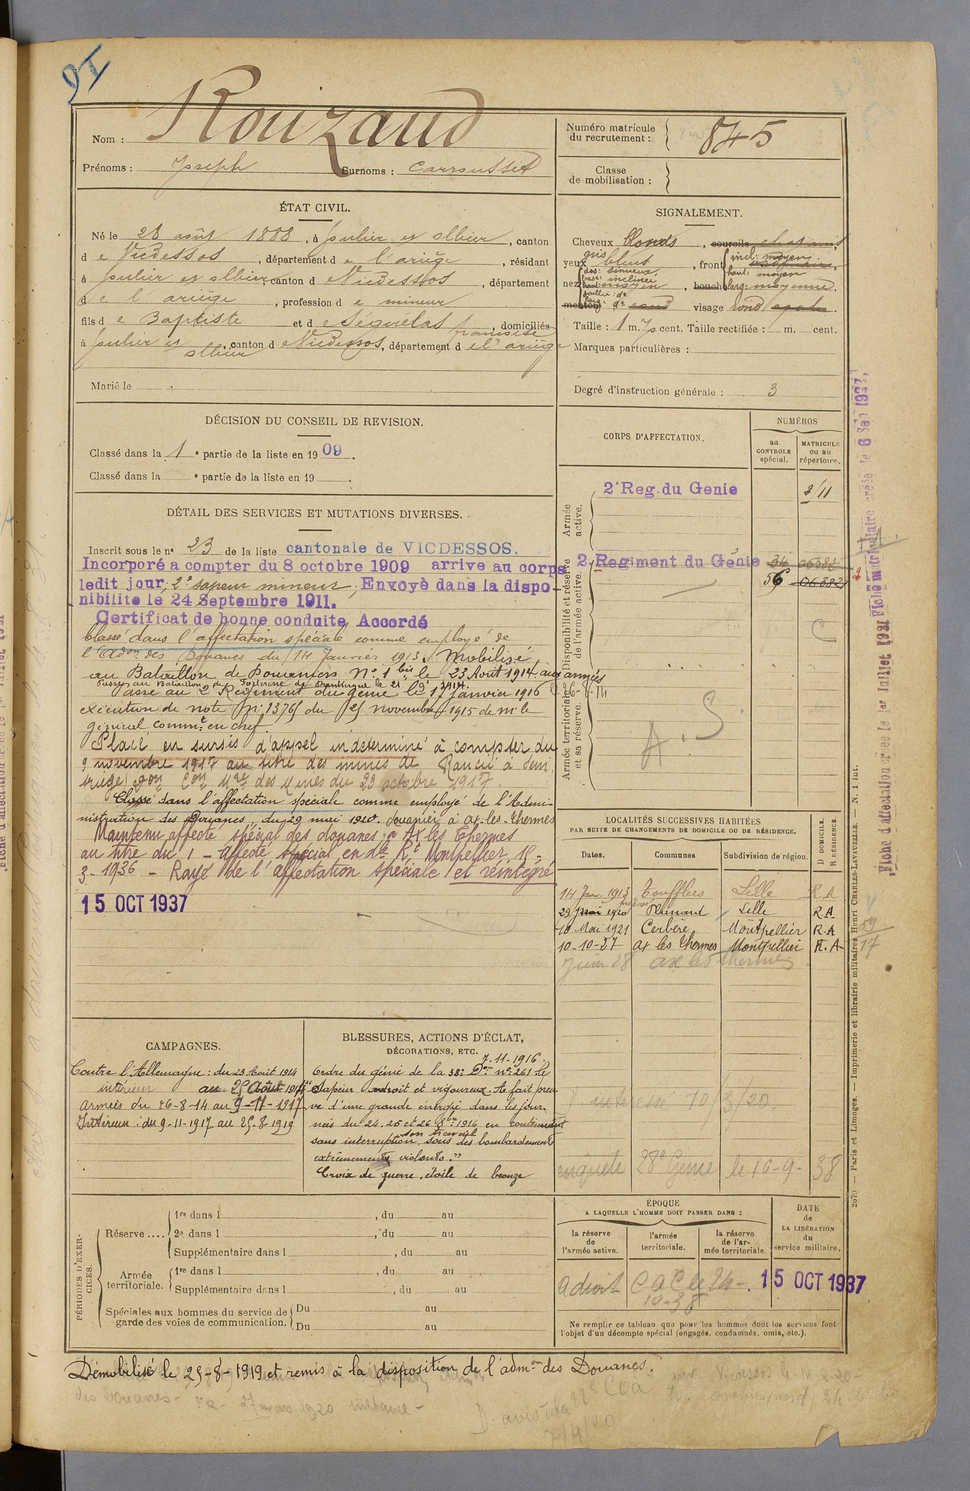 Nom : Rouzaud
Prénoms : Joseph Surnoms : Carrousset
Numéro matricule
du recrutement : 845
Classe
de mobilisation :
ÉTAT CIVIL.
Né le 28 août 1888, à Sulier et Allier, canton
de Vicdessos, département de l'ariège, résidant
à Sulier et Allier, canton de Vicdessos, département
de l'ariège, profession de mineur
fils de Baptiste et de Seguelas françoise, domiciliés
à Sulier et Allier, canton de Vicdessos, département de l'ariège
Marié le
SIGNALEMENT.
Cheveux blonds, sourcils chatains
yeux gris bleus, front incl: moyen
haut: moyen
larg: moyenne
nez dos: sinueux
base: inclinée
haut: moyen
menton rond visage rond
Taille : 1 m. 70 cent. Taille rectifiée : m. cent.
Marques particulières :
Degré d'instruction générale : 3
DÉCISION DU CONSEIL DE REVISION.
Classé dans la 1e partie de la liste en 1909.
Classé dans la e partie de la liste en 19
DÉTAIL DES SERVICES ET MUTATIONS DIVERSES.
Inscrit sous le n° 23 de la liste cantonale de VICDESSOS.
Incorporé a compter du 8 octobre 1909 arrive au corps
ledit jour, 2e sapeur mineur, Envoyé dans la dispo-
nibilité le 24 Septembre 1911.
Certificat de bonne conduite Accordé
Classé dans l'affectation spéciale comme employé de
l'Adon des Douanes du 14 Janvier 1913. Mobilisé
au Bataillon de Douaniers N° 1 bis le 23 Août 1914 aux armées
26-8-14
Passé au 2e Régiment du génie le 17 janvier 1916
exécution de note n° 13765 du 25 novembre 1915 de m. le
général commt en chef
Placé en sursis d'appel indéterminé à compter du
9 novembre 1917 au titre des mines de Rancié à Sem
Classé dans l'affectation spéciale comme employé de l'Admi-
nistration des Douanes, du 29 mai 1920. douanier à ax-les-Thermes
Maintenu affecté spécial des douanes à Ax les Thermes
au titre du 1 - affecté spécial en Montpellier 15-
3-1936 - Rayé de l'affectation spéciale et réintégré
15 OCT 1937
CORPS D'AFFECTATION.
NUMÉROS
au
CONTROLE
spécial.
MATRICULE
ou au
répertoire.
Armée
active.
2e Reg. du Genie 211
Disponibilité et réserve
de l'armée active.
2 Regiment du Génie 34
56 06382
Armée territoriale
et sa réserve.
A.S.
LOCALITÉS SUCCESSIVES HABITÉES
PAR SUITE DE CHANGEMENTS DE DOMICILE OU DE RÉSIDENCE.
Dates. Communes Subdivision de région. D DOMICILE. R RÉSIDENCE.
14 Janv. 1913 Toufflers Lille R A
29 mai 1920 Lille R A
10 Mai 1921 Cerbère Montpellier R A
10-10-27 ax les thermes Montpellier R. A
Juin 28 axe les thermes
CAMPAGNES.
Contre l'Allemagne : du 23 Août 1914
intérieur au 25 Août 1914
armées du 26-8-14 au 9-11-1917
Intérieur : du 9-11-1917 au 25-8-1919
BLESSURES, ACTIONS D'ÉCLAT,
DÉCORATIONS, ETC.
7-11-1916.
Ordre du génie de la 38e Don n° 261 le
"Sapeur adroit et vigoureux. A fait preu-
ve d'une grande énergie dans les jour-
nées du 24, 25 et 26 8bre 1916 en continuant
sans interruption son travail sous des bombardements
extrêmement violents."
Croix de guerre, étoile de bronze
enquete 28e Genie le 16-9-38
PÉRIODES D'EXERCICES.
Réserve .... 1re dans l , du au
2e dans l , du au
Supplémentaire dans l , du au
Armée
territoriale. 1re dans l , du au
Supplémentaire dans l , du au
Spéciales aux hommes du service de
garde des voies de communication. Du au
Du au
ÉPOQUE
A LAQUELLE L'HOMME DOIT PASSER DANS :
la réserve
de
l'armée active.
l'armée
territoriale.
la réserve
de l'ar-
mée territoriale.
DATE
de
LA LIBÉRATION
du
service militaire.
adroit 15 OCT 1937
10-38
Ne remplir ce tableau que pour les hommes dont les services font
l'objet d'un décompte spécial (engagés, condamnés, omis, etc.).
Démobilisé le 25-8-1919 et remis à la disposition de l'admon des Douanes.
Paris et Limoges. — Imprimerie et librairie militaires Henri CHARLES-LAVAUZELLE.
Fiche matriculaire créée le 6 Sep 1927
Fiche d'affectation créée le 1er Juillet 1931